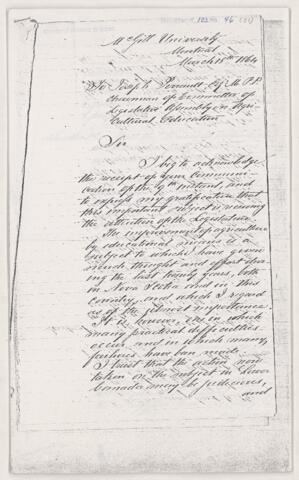 McGill University
Montreal
March 15th 1864
To Joseph Perrault Esq M.P.P.
Chairman of Committee of
Legislative Assembly on Agri-
cultural Education
Sir
I beg to acknowledge
the receipt of your Communi-
cation of the 9th instant, and
to express my gratification that
this important subject is receiving
the attention of the Legislature.
The improvement of agriculture
by educational means is a
subject to which I have given
much thought and effort dur-
ing the last twenty years, both
in Nova Scotia and in this
Country, and which I regard
as of the utmost importance.
It is however one in which
many practical difficulties
occur and in which many
failures have been made.
I trust that the action now
taken on the subject in Lower
Canada may be judicious,
and